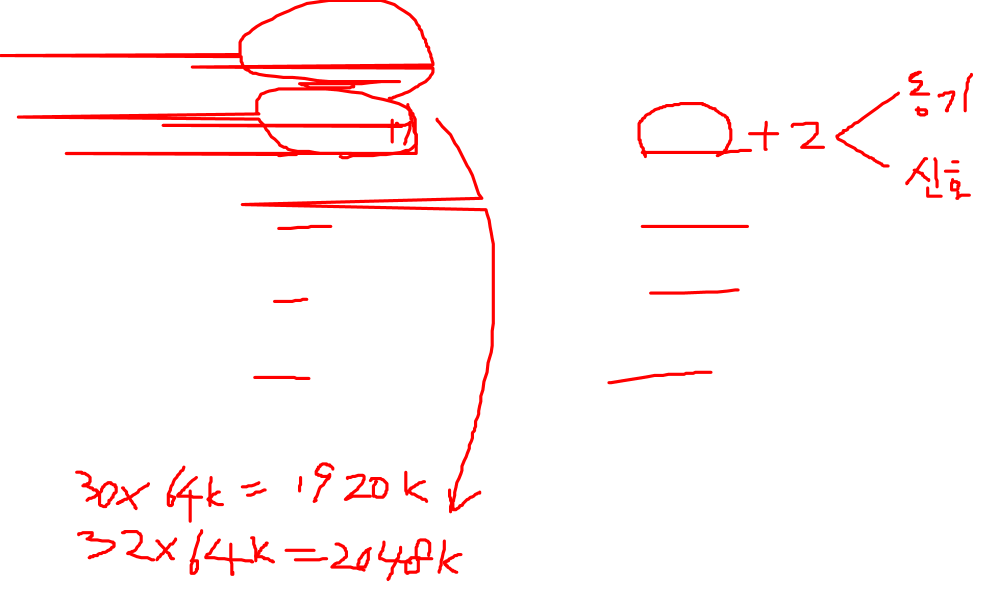 +2
동기
신호
30x64k=1920k
32x64k=2048k